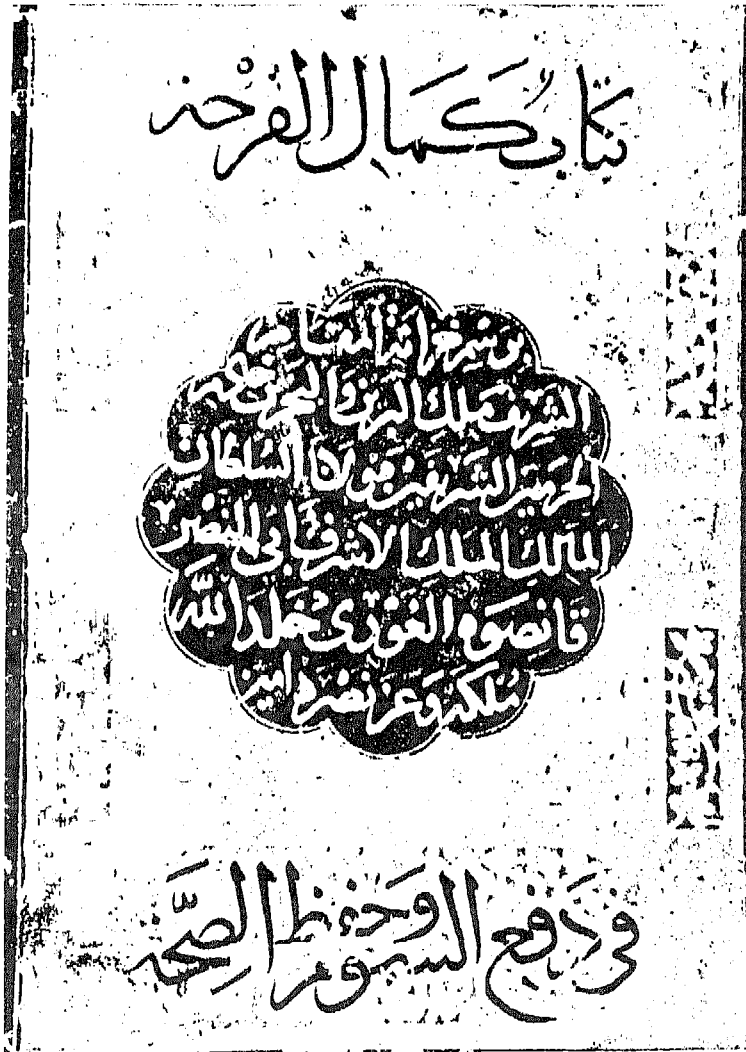 كتاب كمال الفرحة
برسم خزانة المقام
الشريف ملك البرين والبحرين خادم
الحرمين الشريفين مولانا السلطان
المالك الملك الاشرف ابى النصر
قانصوه الغورى خلد الله
ملكه وعز نصره امين
فى دفع السموم وحفظ الصحه